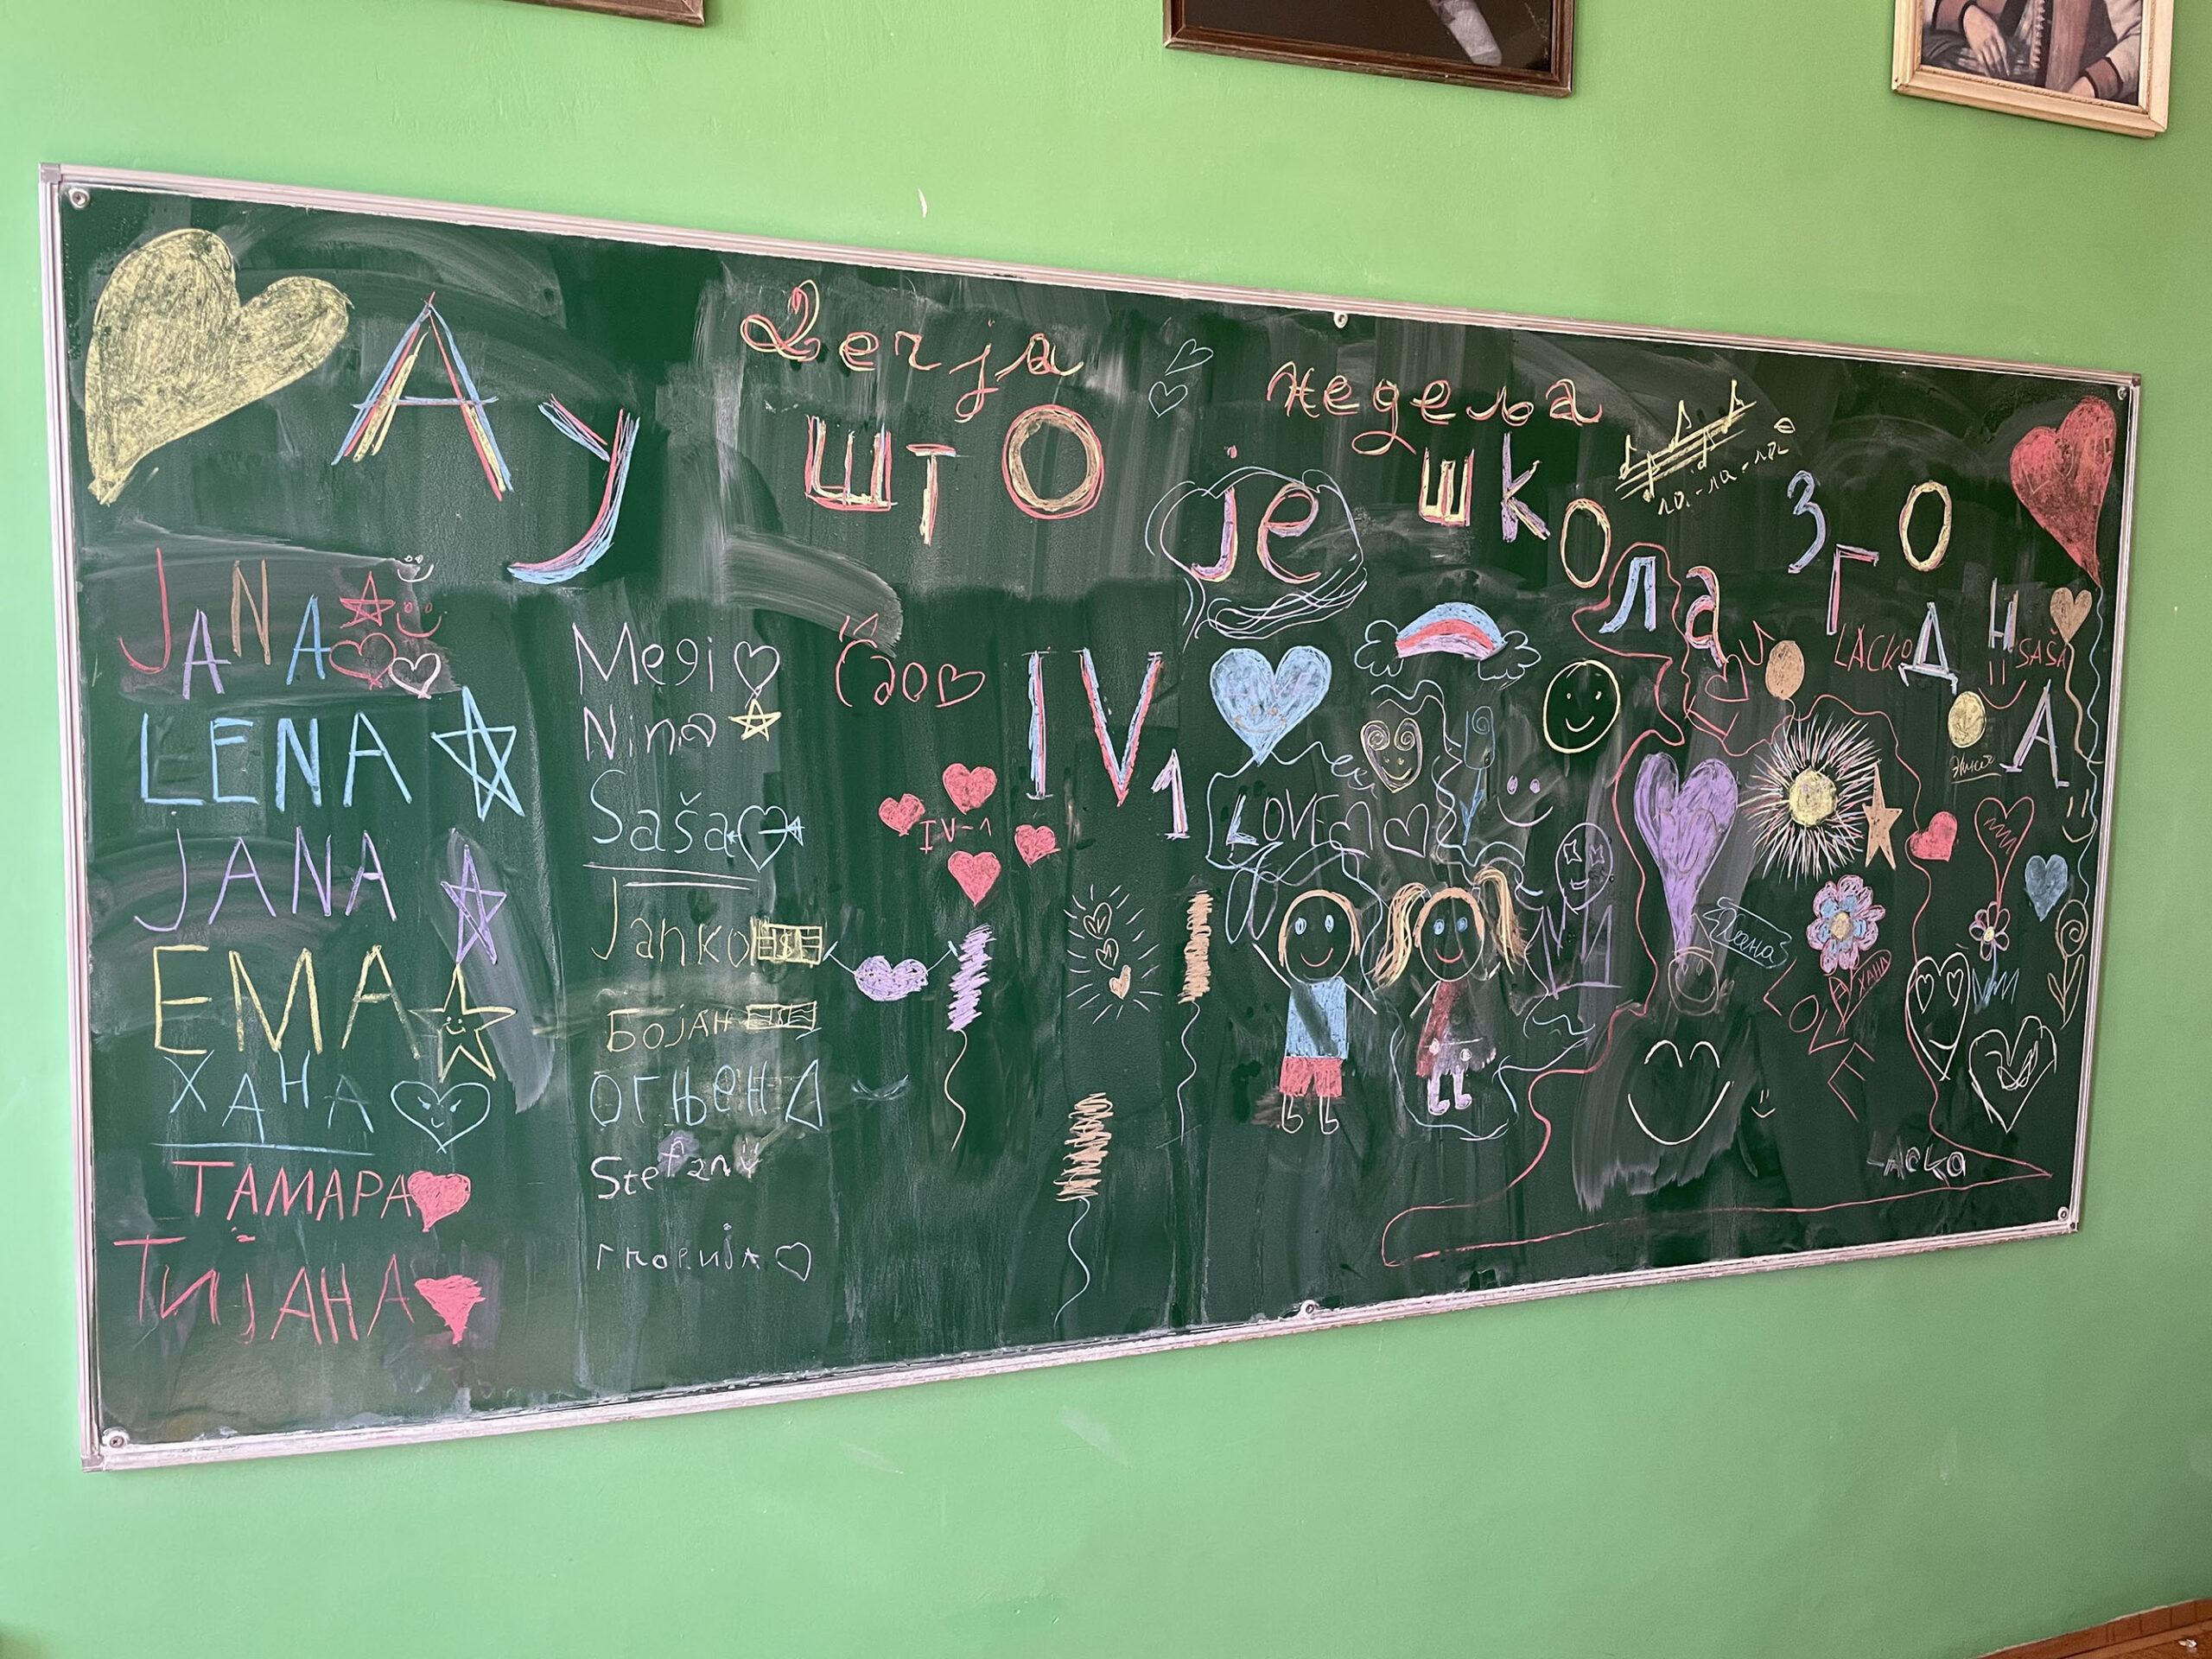 Дечја недеља
Ау што је школа згодна
ла-ла-ла
JANA
LENA
JANA
EMA
ХАНА
ТАМАРА
ТИЈАНА
Megi
Nina
Saša
Janko
БОЈАН
ОГЊЕН
Stefani
Ćao
IV1
IV-1
LOVE
LACKO
SAŠA
ХАНА